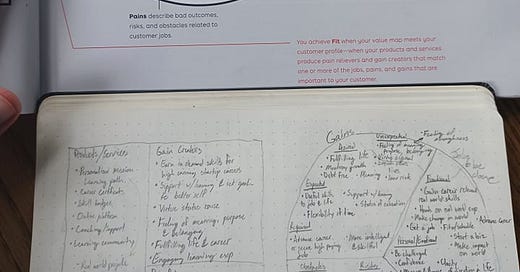 Pains describe bad outcomes,
risks, and obstacles related to
customer jobs.
You achieve Fit when your value map meets your
customer profile—when your products and services
produce pain relievers and gain creators that match
one or more of the jobs, pains, and gains that are
important to your customer.
Products/Services
Personalized
Learning path
Career certificate
Skill badges
Online platform
Coaching/Support
Learning community
Real world projects
Gain Creators
Earn in demand skills for
high earning startup careers
Support w/ learning & set goals
to better
Virtue status course
Feeling of meaning, purpose
& belonging
Fulfilling life & career
Engaging learning exp
Gains
Desired
Fulfilling life
Monetary growth
Debt free
Meaning
Unexpected
Feeling of meaning
purpose, belonging
Feeling of
lives
Expected
Useful skills
to job & life
Flexibility of time
Support w/ learning
Status of education
Required
Advance career
or secure high paying
job
More intelligent
& skillful
Obstacles
Risks
Jobs to be done
Functional
Gain career relevant
real world skills
Hands on real world exp
Make change in world
Get a job
Advance career
Personal/Emotional
Be challenged
Confidence
Start a biz
Make impact
on world